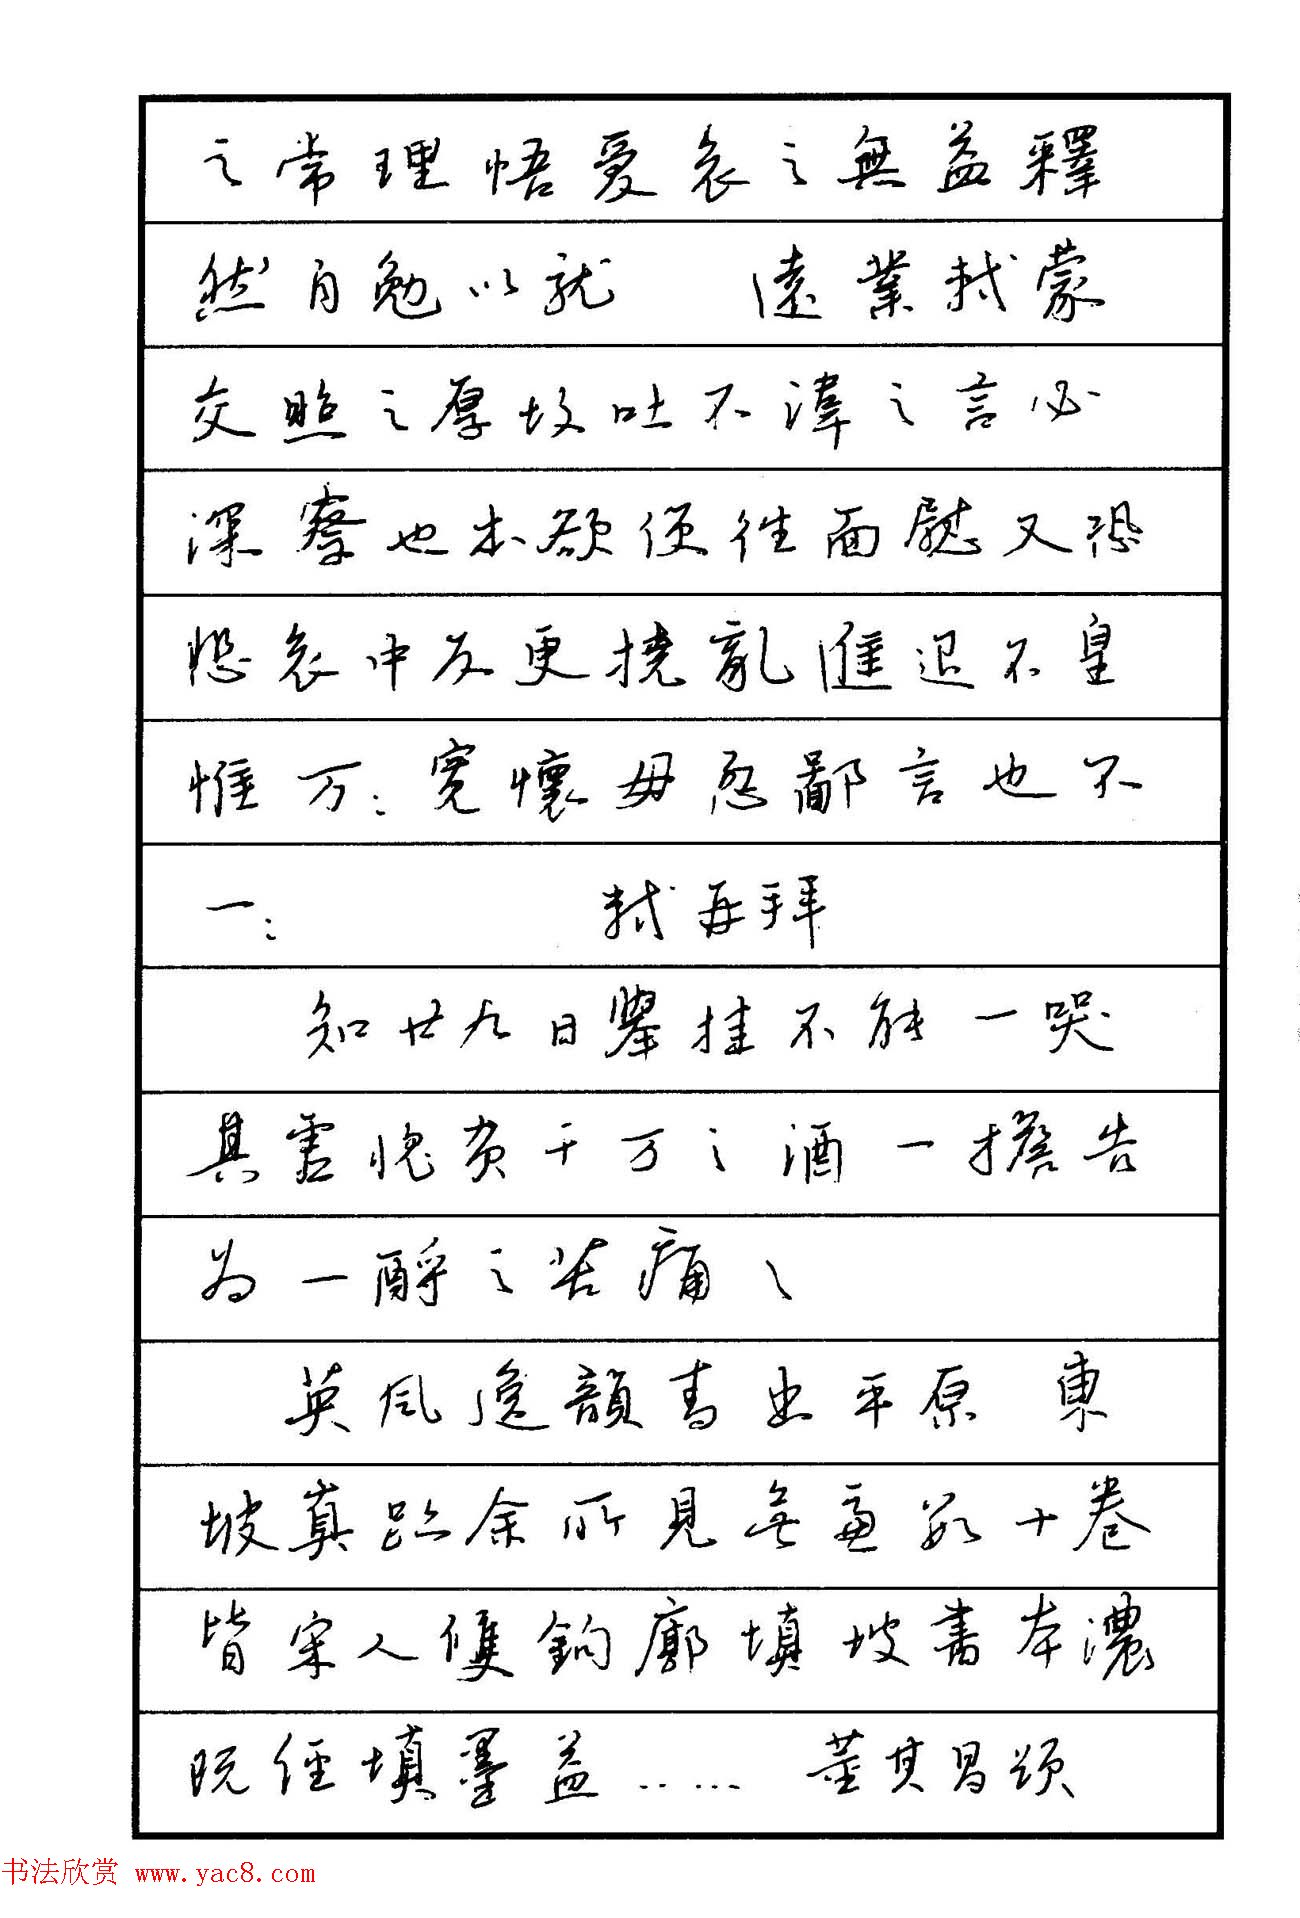 之常理悟爱哀之無益釋
然自勉以就 遠業軾蒙
交照之厚故吐不諱之言必
深察也本欲便往面慰又恐
悲哀中反更撓亂進退不皇
惟万〻寬懷毋忽鄙言也不
一〻 軾再拜
知廿九日舉挂不能一哭
其靈愧負千万之酒一擔告
为一酹之苦痛〻
英風逸韻書出平原 東
坡真跡余所見無慮数十卷
皆宋人雙鉤廓填坡書本濃
既經填墨益…… 董其昌頌
书法欣赏 www.yac8.com